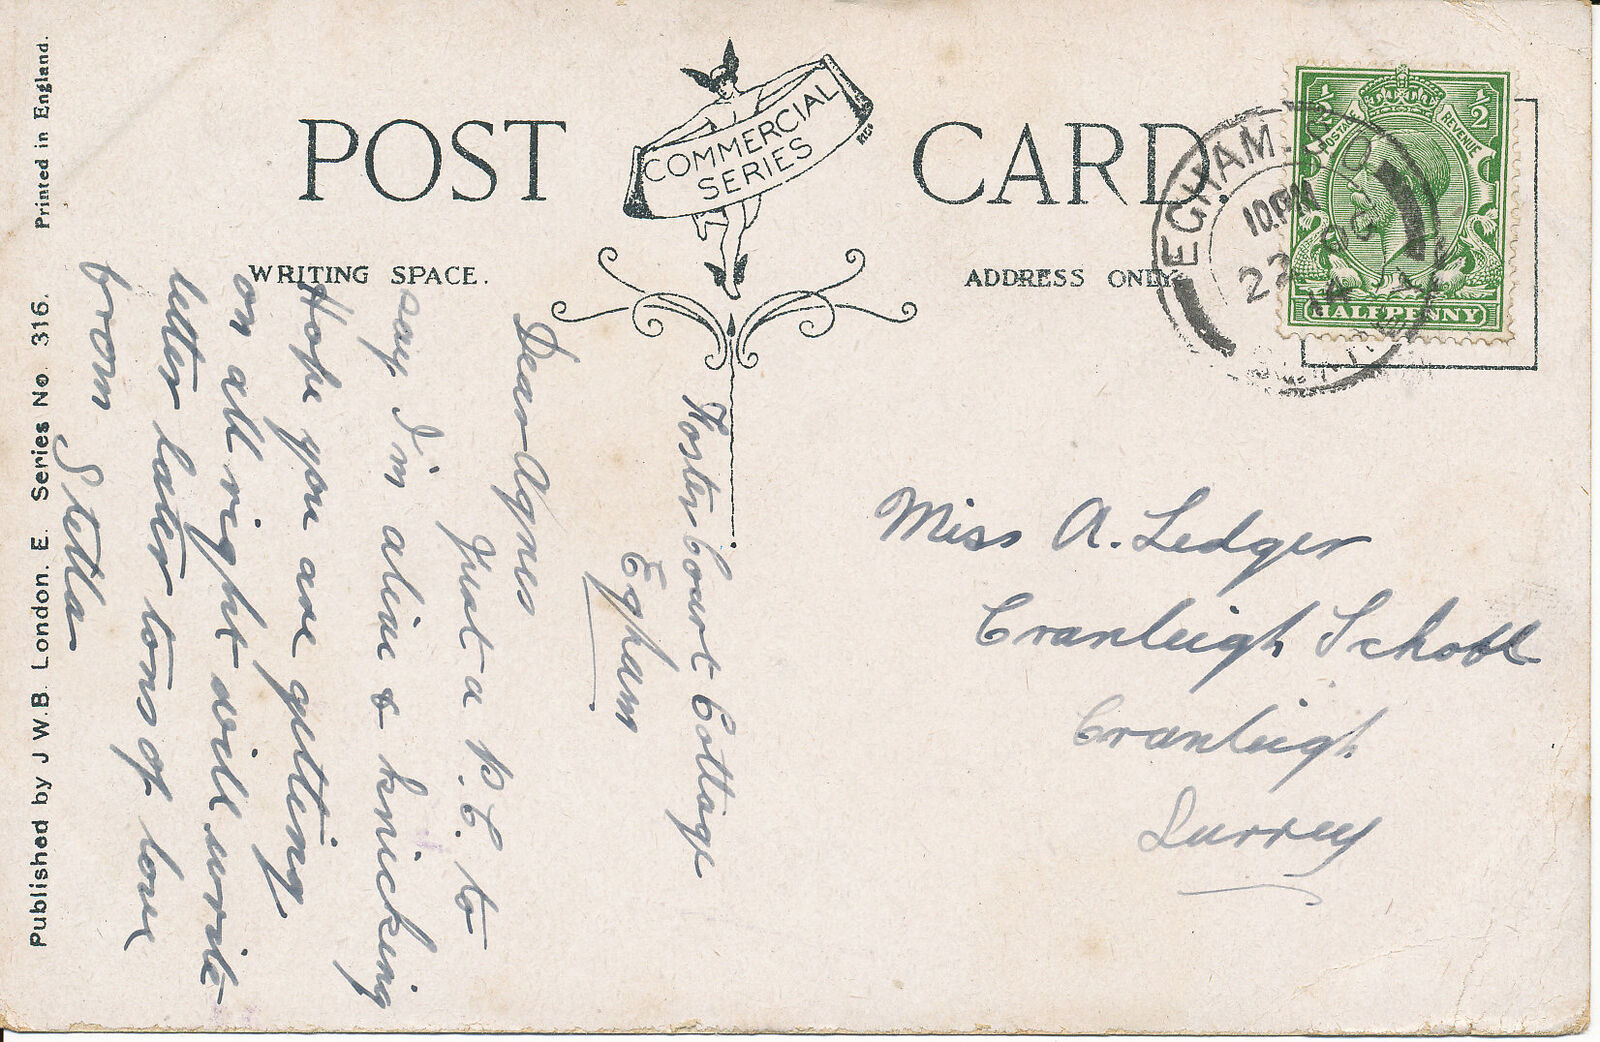 POST CARD
COMMERCIAL
SERIES
WRITING SPACE.
ADDRESS ONLY.
½ ½
POSTAL REVENUE
HALFPENNY
EGHAM
10.PM
22
14
Foster Court Cottage
Egham
Dear Agnes
Just a P.C. to
say I'm alive & knicking
Hope you are getting
on all right will write
letter later tons of love
from
Stella
Miss A. Ledger
Cranleigh School
Cranleigh
Surrey
Published by J W.B. London. E. Series No. 316. Printed in England.